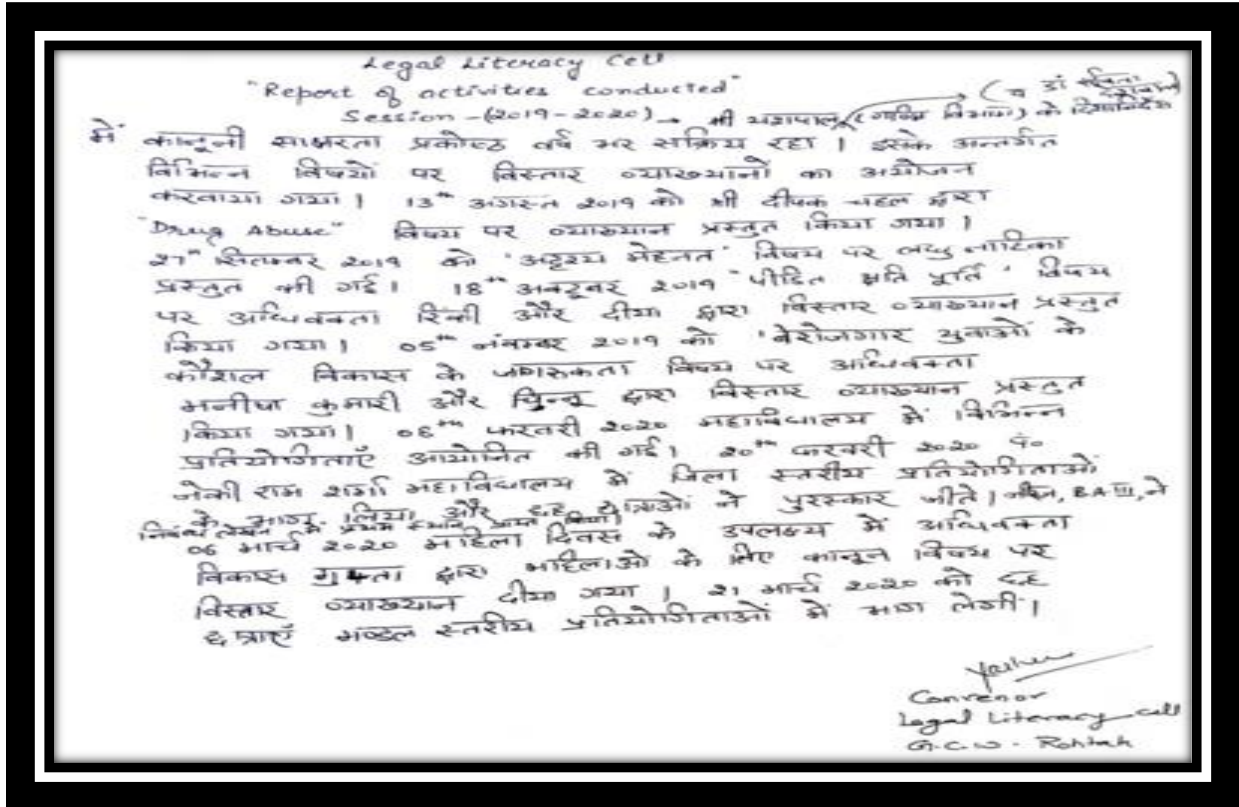 Legal Literacy Cell
"Report of activities conducted"
Session -(2019-2020) → श्री यशपाल (गणित विभाग) के दिशानिर्देश
(व डॉ
में कानूनी साक्षरता प्रकोष्ठ वर्ष भर सक्रिय रहा । इसके अन्तर्गत
विभिन्न विषयों पर विस्तार व्याख्यानों का अयोजन
करवाया गया । 13th अगस्त 2019 को श्री दीपक चहल द्वारा
"Drug Abuse" विषय पर व्याख्यान प्रस्तुत किया गया ।
27th सितम्बर 2019 को 'अदृश्य मेहनत' विषय पर लघु नाटिका
प्रस्तुत की गई । 18th अक्टूबर 2019 'पीडित क्षति पूर्ति' विषय
पर अधिवक्ता रिंकी और दीपा द्वारा विस्तार व्याख्यान प्रस्तुत
किया गया । 05th नंवम्बर 2019 को 'बेरोजगार युवाओं के
कौशल विकास के जागरुकता विषय पर अधिवक्ता
मनीषा कुमारी और द्वारा विस्तार व्याख्यान प्रस्तुत
किया गया । 06th फरवरी 2020 महाविधालय में विभिन्न
प्रतियोगिताएँ आयोजित की गई । 20th फरवरी 2020 पं०
नेकी राम शर्मा महाविधालय में जिला स्तरीय प्रतियोगिताओं
के भाग लिया और छह छात्राओं ने पुरस्कार जीते । BA III, ने
निबंध लेखन में प्रथम स्थान प्राप्त किया ।
06 मार्च 2020 महिला दिवस के उपलक्ष्य में अधिवक्ता
विकास गुप्ता द्वारा महिलाओं के लिए कानून विषय पर
विस्तार व्याख्यान दीया गया । 21 मार्च 2020 को छह
छात्राएँ मण्डल स्तरीय प्रतियोगिताओं में भाग लेगीं ।
Convenor
Legal Literacy cell
G.C.W. Rohtak